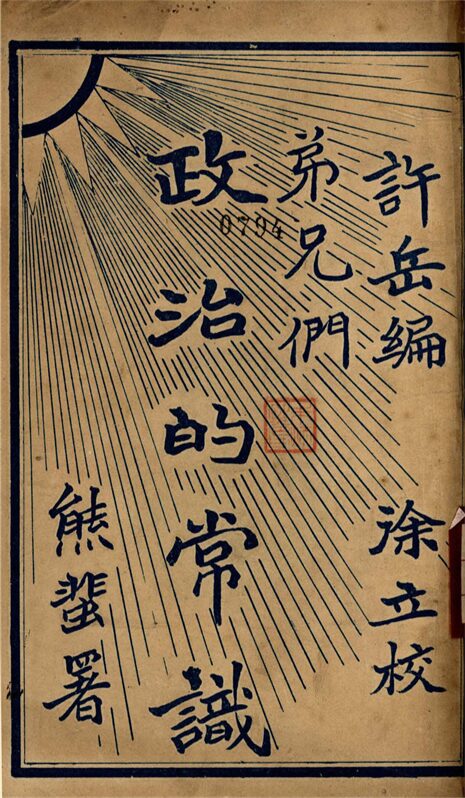 許岳編
徐立校
弟兄們
政治的常識
0794
熊蜚署